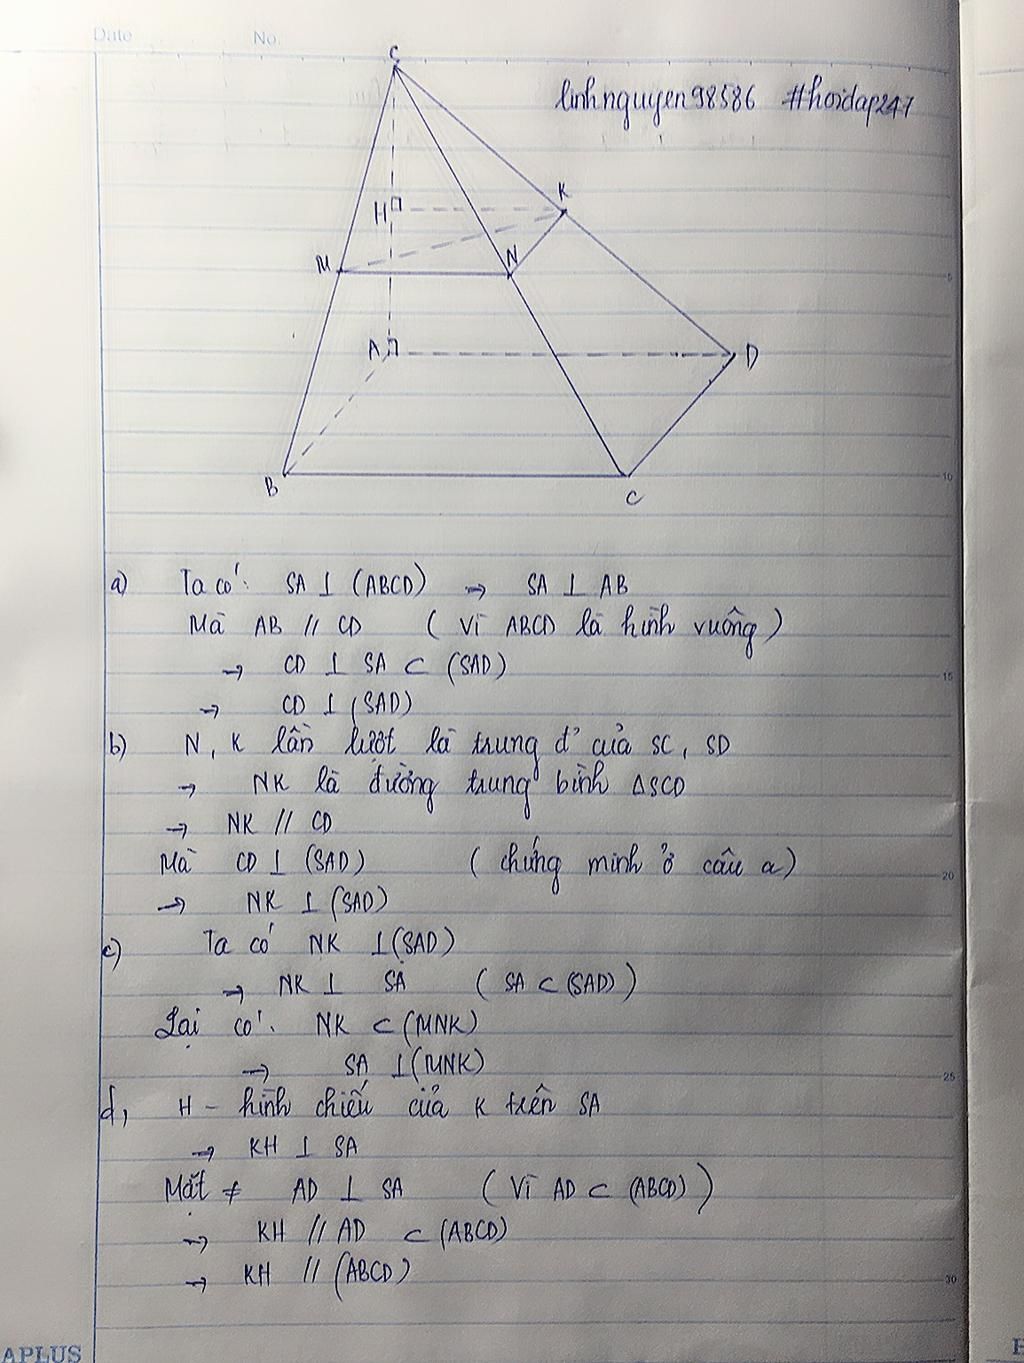 Date No.
linhnguyen98586 #hoidap247
S
K
H
M
N
A
D
B
C
a) Ta có: SA ⊥ (ABCD) → SA ⊥ AB
Mà AB // CD (Vì ABCD là hình vuông)
→ CD ⊥ SA ⊂ (SAD)
→ CD ⊥ (SAD)
b) N, K lần lượt là trung đ' của SC, SD
→ NK là đường trung bình ΔSCD
→ NK // CD
Mà CD ⊥ (SAD) (chứng minh ở câu a)
→ NK ⊥ (SAD)
c) Ta có NK ⊥ (SAD)
→ NK ⊥ SA (SA ⊂ (SAD))
Lại có: NK ⊂ (MNK)
→ SA ⊥ (MNK)
d, H - hình chiếu của K trên SA
→ KH ⊥ SA
Mặt ≠ AD ⊥ SA (Vì AD ⊂ (ABCD))
→ KH // AD ⊂ (ABCD)
→ KH // (ABCD)
5
10
15
20
25
30
APLUS